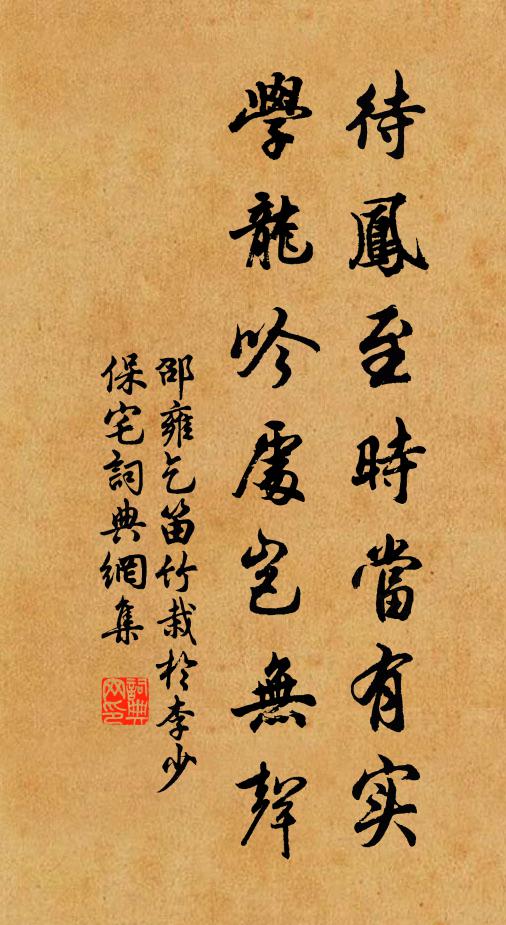 待鳳至時當有实
學龍吟處豈無聲
邵雍乞笛竹栽於李少
保宅詞典網集
詞典
网印